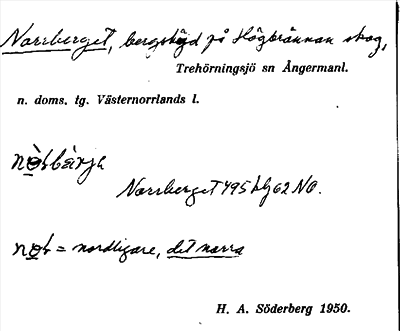 Norrberget, bergshöjd på Högbrännan skog,
Trehörningsjö sn Ångermanl.
n. doms. tg. Västernorrlands l.
Norrberget 795 hg 62 NO.
= nordligare, det norra
H. A. Söderberg 1950.